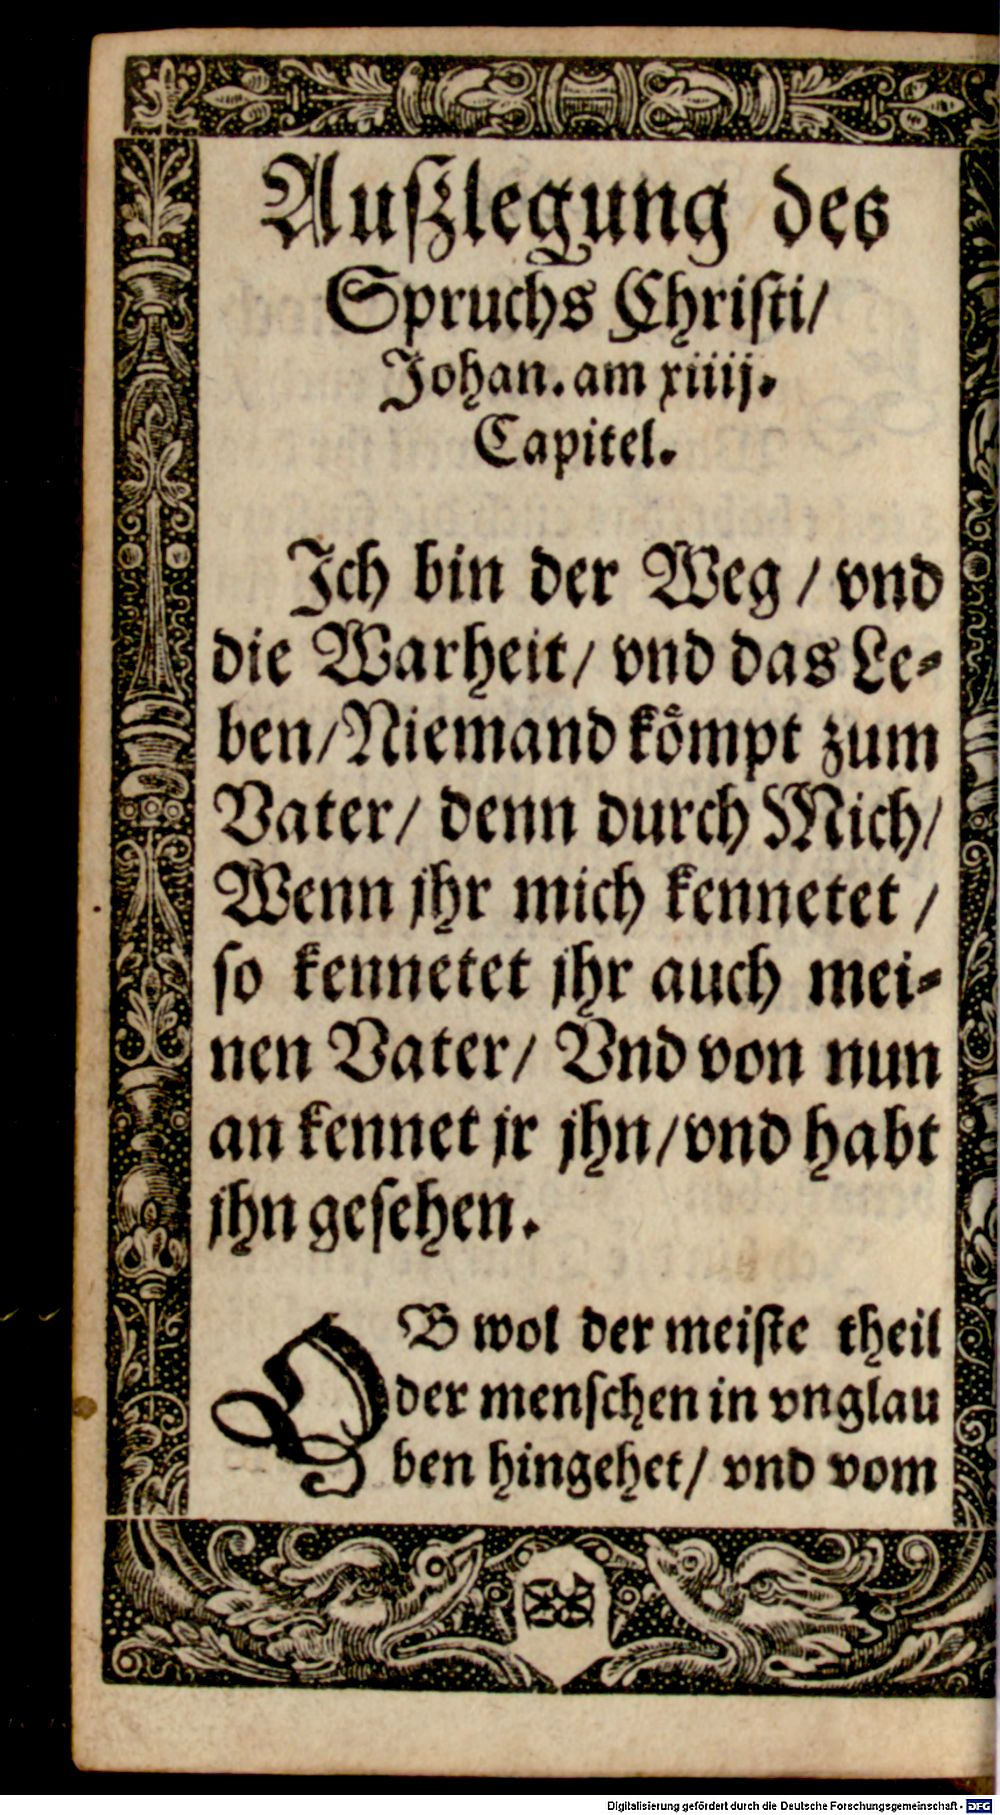 Auſzlegung des
Spruchs Chriſti/
Johan. am xiiij.
Capitel.
Ich bin der Weg / vnd
die Warheit / vnd das Le-
ben / Niemand koͤmpt zum
Vater / denn durch Mich /
Wenn jhr mich kennetet /
ſo kennetet jhr auch mei-
nen Vater / Vnd von nun
an kennet jr jhn / vnd habt
jhn geſehen.
OB wol der meiſte theil
der menſchen in vnglau
ben hingehet / vnd vom
Digitalisierung gefördert durch die Deutsche Forschungsgemeinschaft - DFG